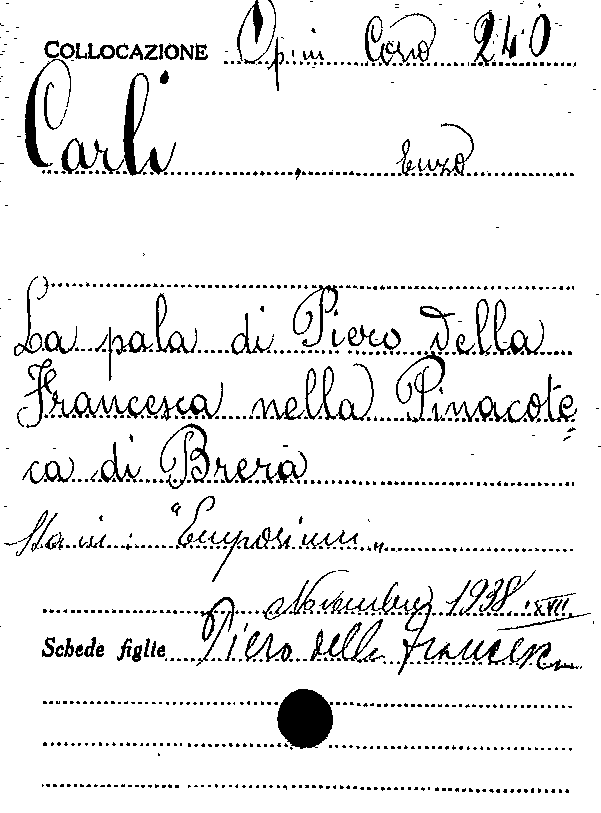 COLLOCAZIONE Opin Coso 240
Carli , Enzo
La pala di Piero della
Francesca nella Pinacote=
ca di Brera
Sta in: "Emporium„
Novembre 1938 XVII
Schede figlie Piero della Francesca